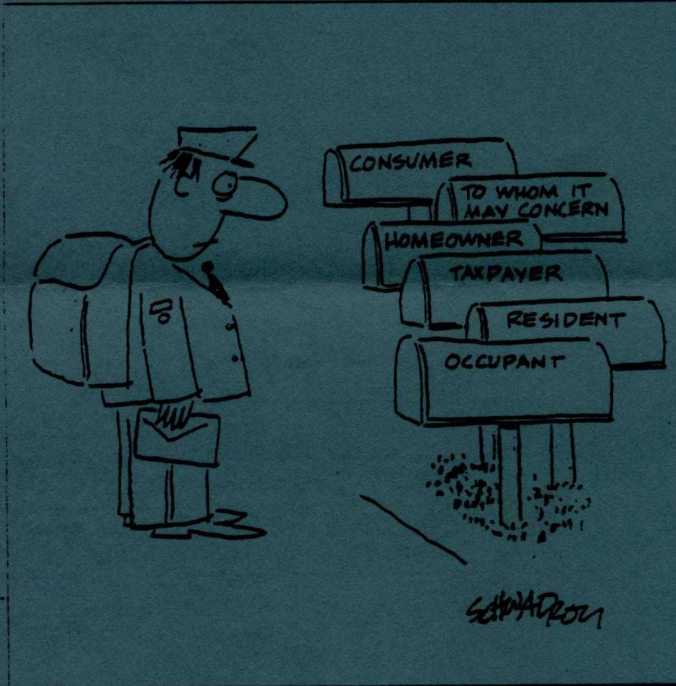 CONSUMER
TO WHOM IT
MAY CONCERN
HOMEOWNER
TAXPAYER
RESIDENT
OCCUPANT
SCHWADRON